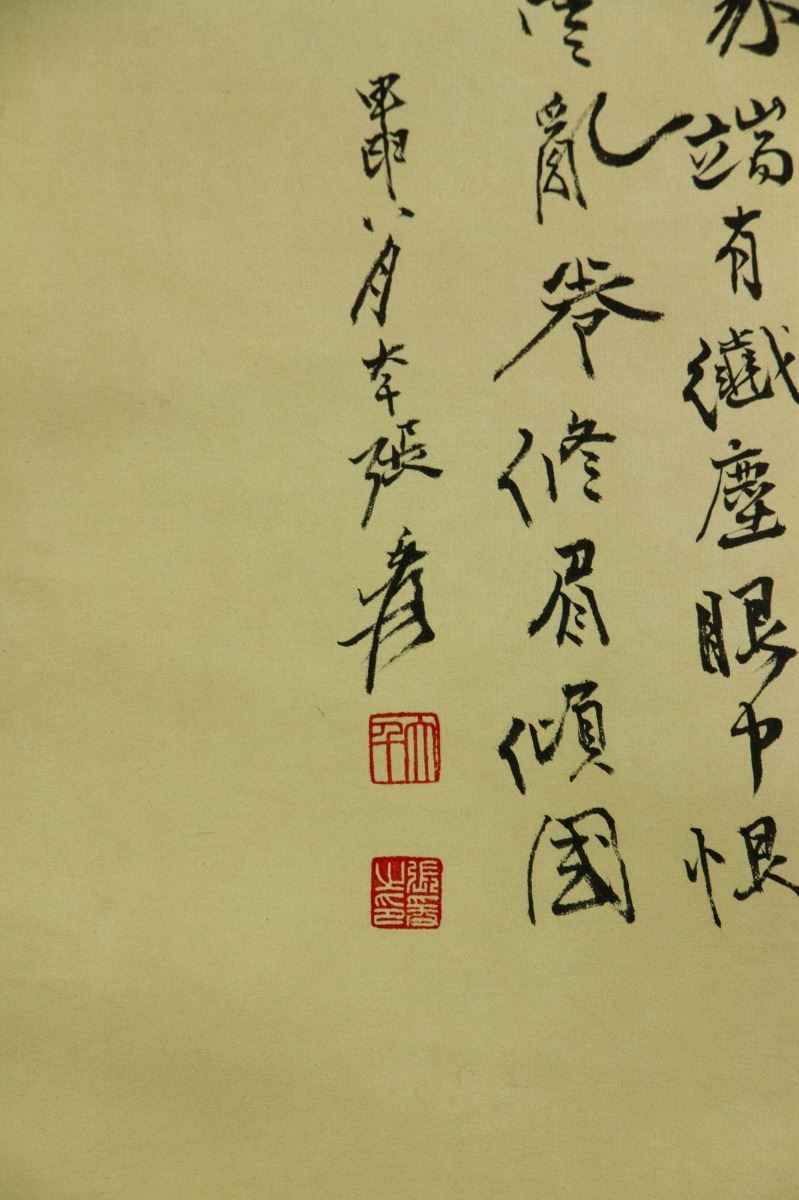 端有纖塵眼中恨
亂修眉傾國
甲申八月大千張爰
大千
張爰之印